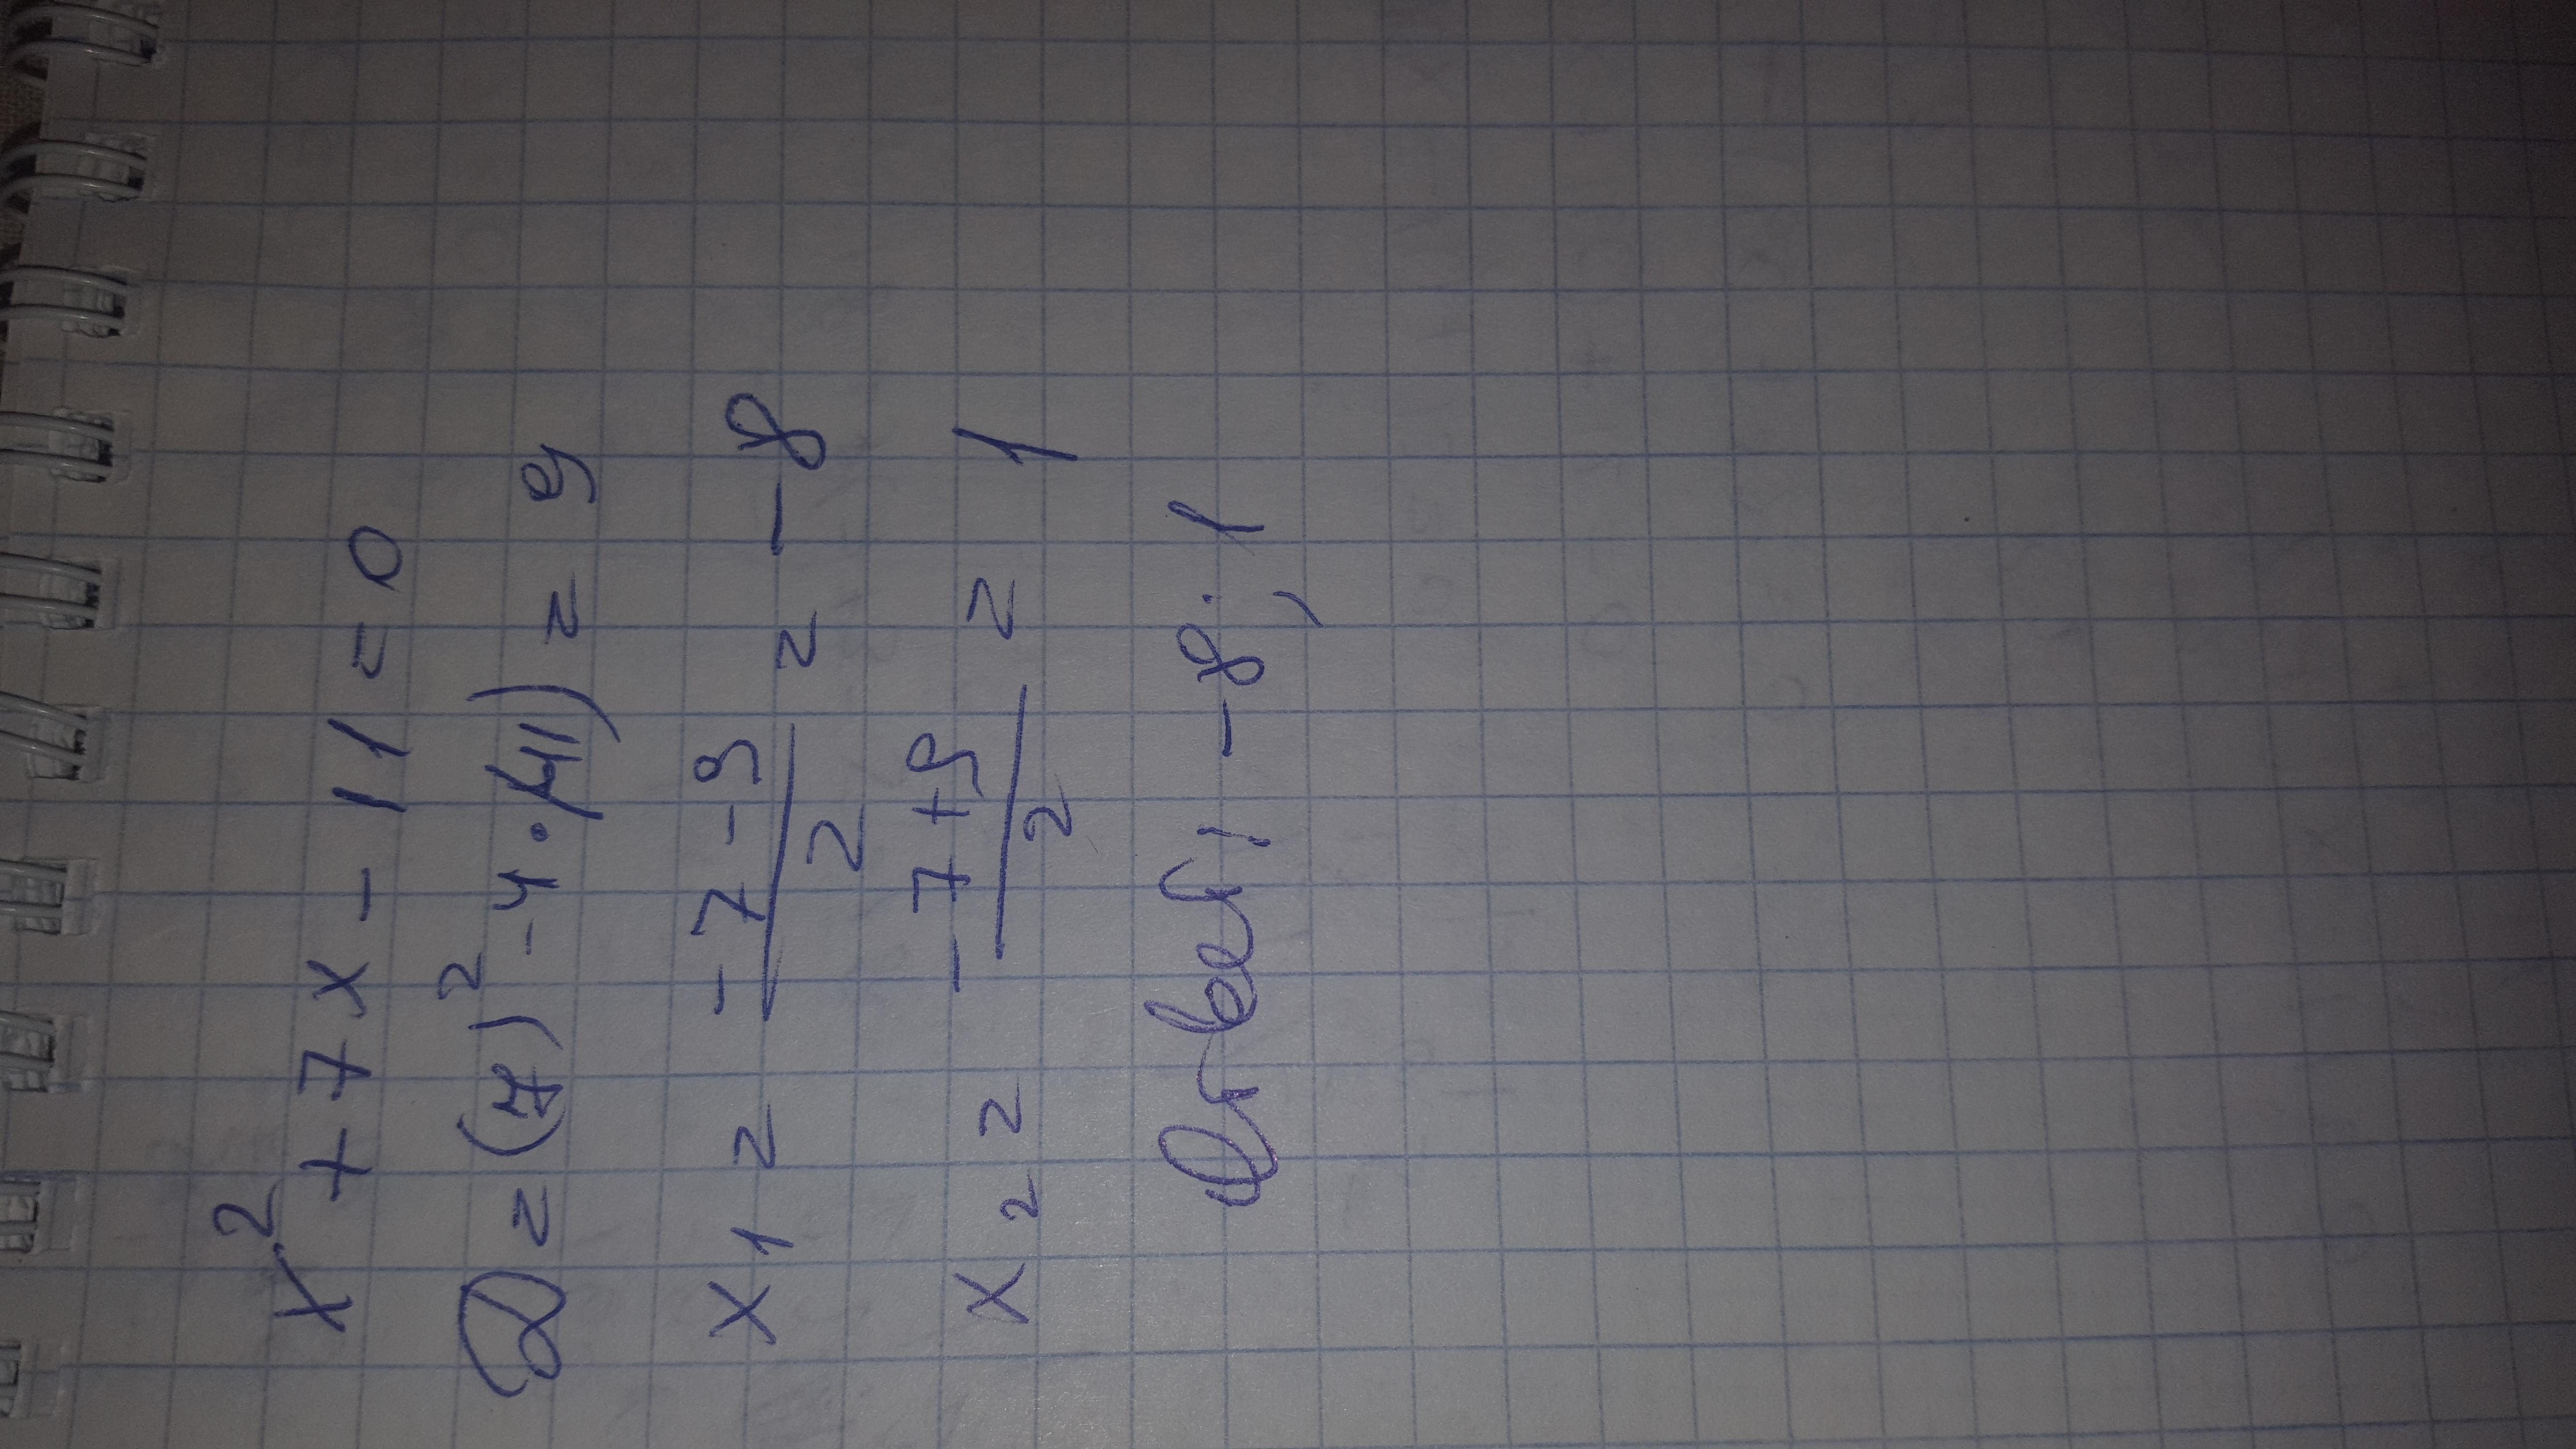 x² + 7x - 11 = 0
D = (7)² - 4·(-11) = 9
x₁ = \frac{-7-9}{2} = -8
x₂ = \frac{-7+9}{2} = 1
Ответ: -8; 1